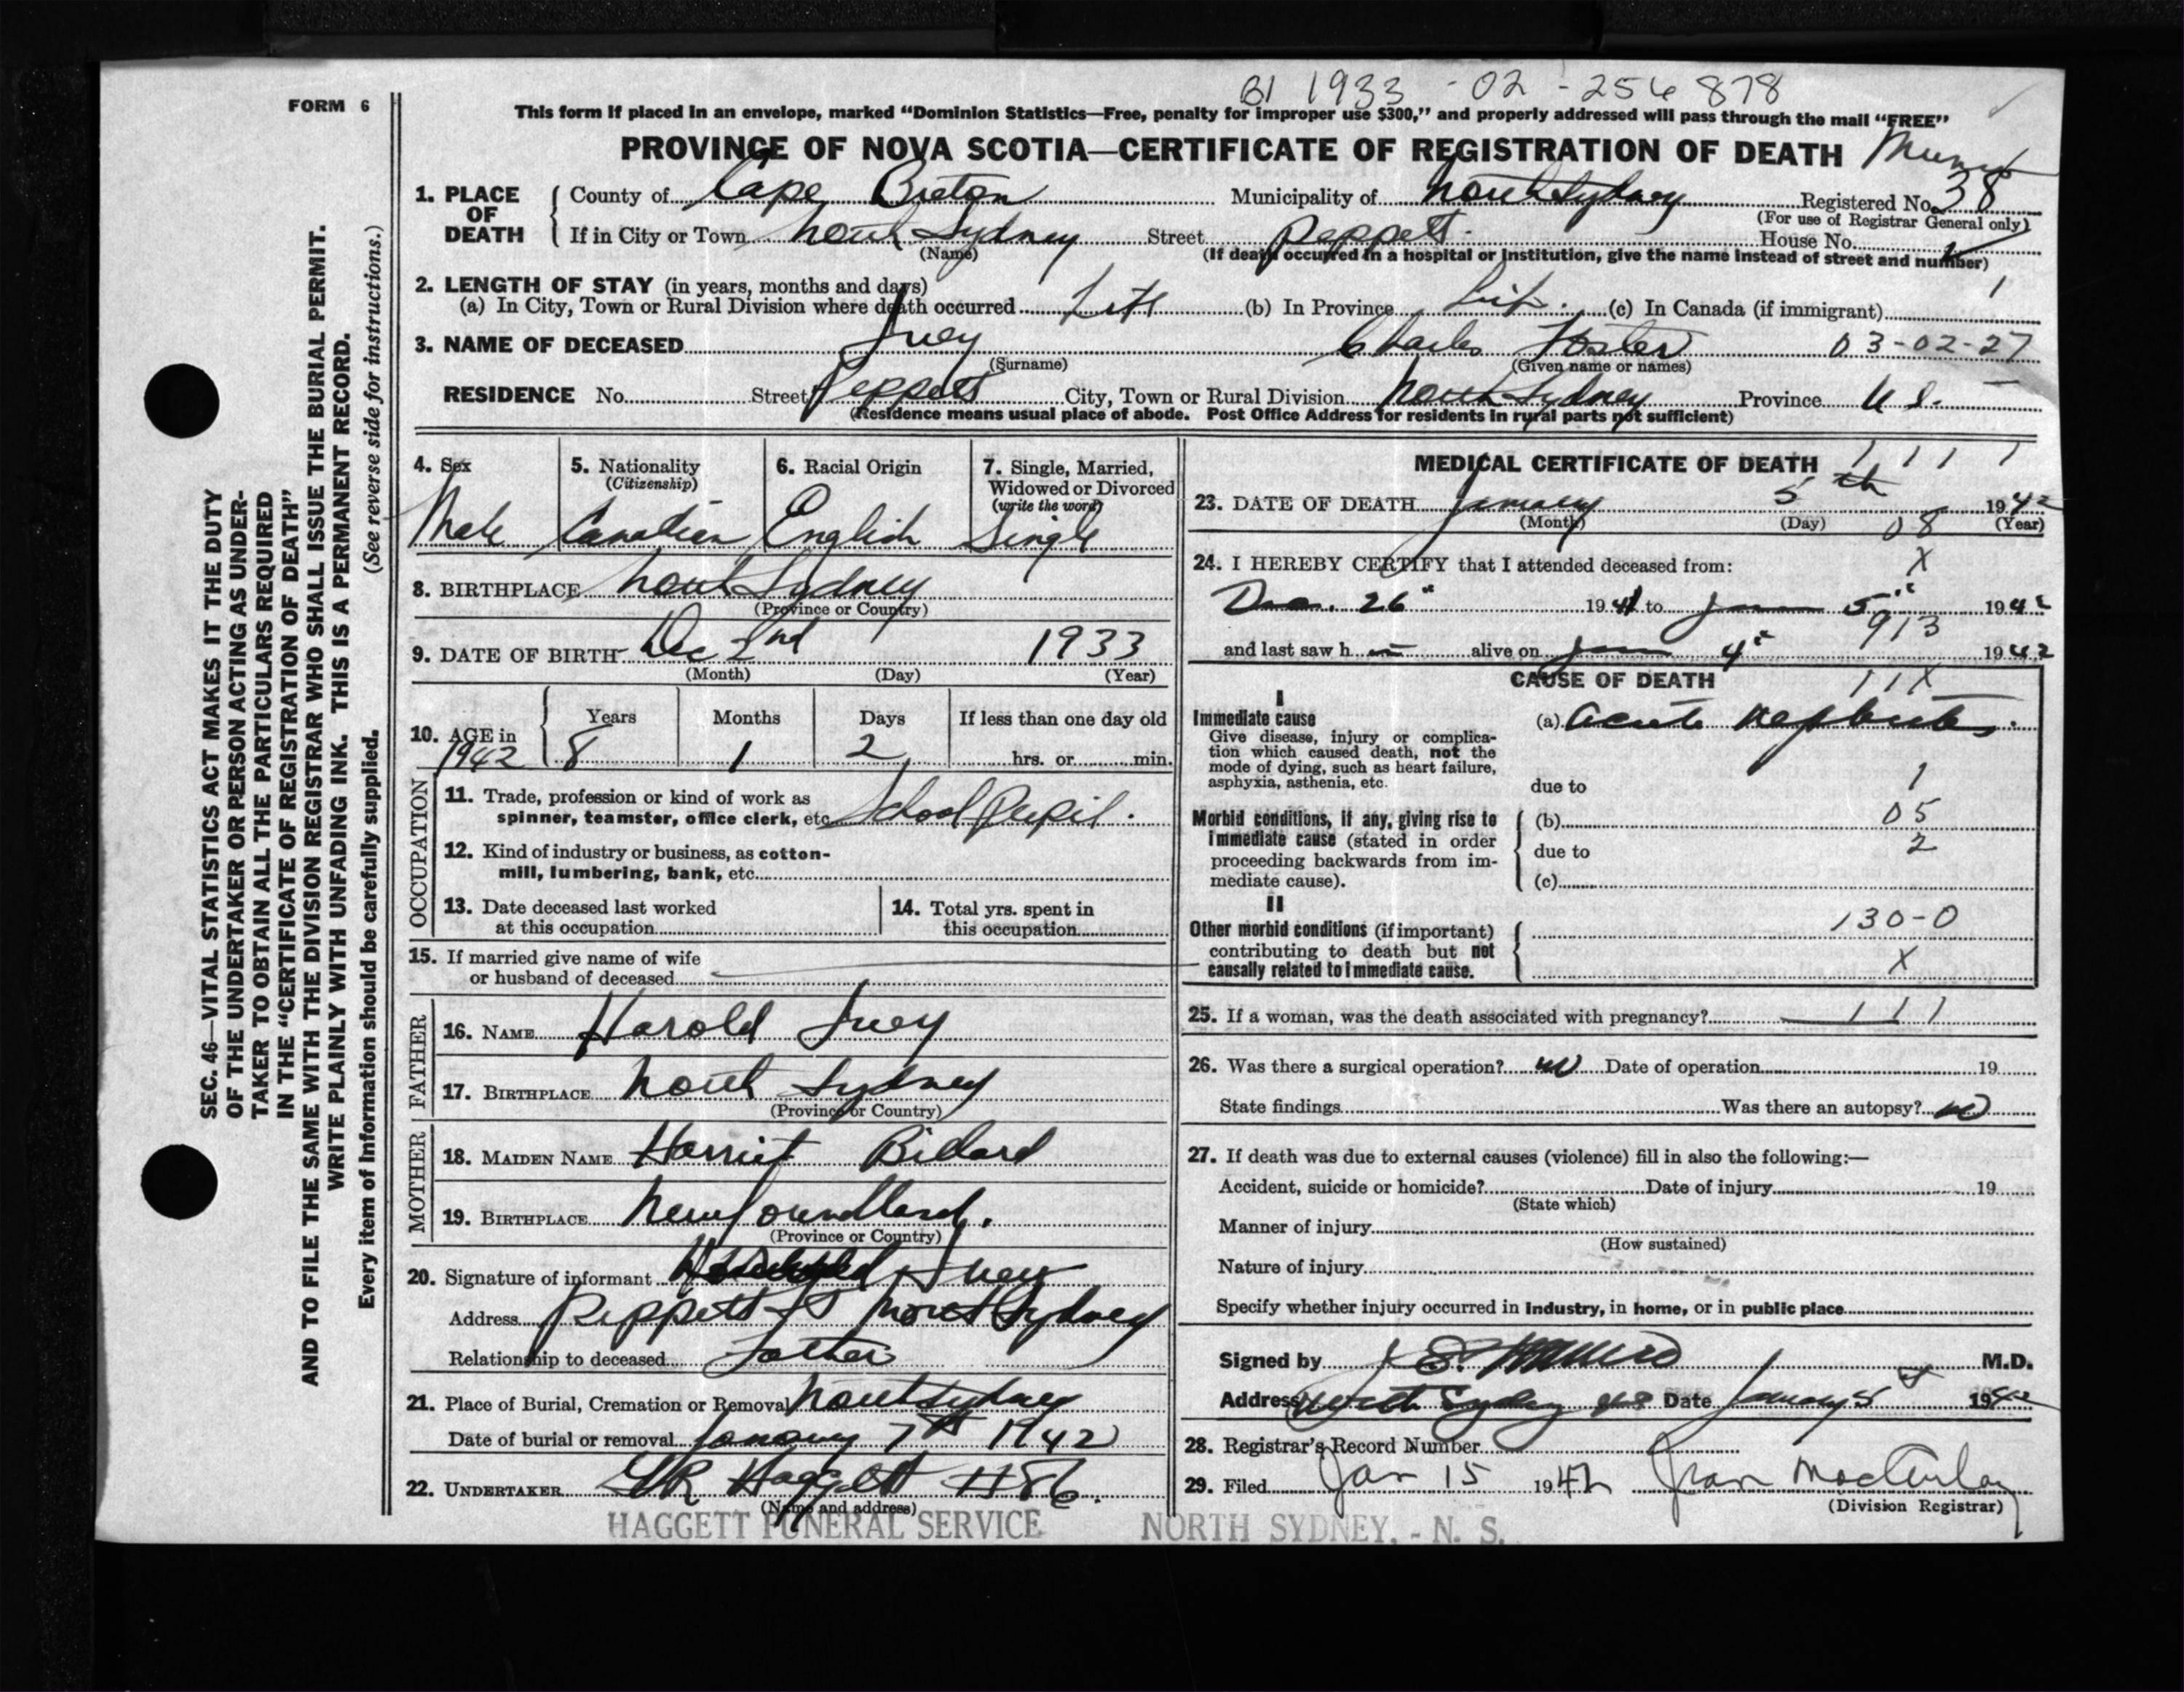 BI 1933 - 02 - 254 878
FORM 6
This form if placed in an envelope, marked “Dominion Statistics—Free, penalty for improper use $300,” and properly addressed will pass through the mail “FREE”
PROVINCE OF NOVA SCOTIA—CERTIFICATE OF REGISTRATION OF DEATH
1. PLACE OF DEATH County of Cape Breton Municipality of North Sydney Registered No. 38
(For use of Registrar General only)
If in City or Town North Sydney Street Peppett House No.
(Name) (If death occurred in a hospital or institution, give the name instead of street and number)
2. LENGTH OF STAY (in years, months and days)
(a) In City, Town or Rural Division where death occurred Life (b) In Province Life. (c) In Canada (if immigrant) 1
3. NAME OF DECEASED Ivey Charles Foster 03-02-27
(Surname) (Given name or names)
RESIDENCE No. Street Peppett City, Town or Rural Division North Sydney Province N S.
(Residence means usual place of abode. Post Office Address for residents in rural parts not sufficient)
4. Sex 5. Nationality (Citizenship) 6. Racial Origin 7. Single, Married, Widowed or Divorced (write the word)
Male Canadian English Single
8. BIRTHPLACE North Sydney
(Province or Country)
9. DATE OF BIRTH Dec 2nd 1933
(Month) (Day) (Year)
10. AGE in 1942 Years 8 Months 1 Days 2 If less than one day old hrs. or min.
OCCUPATION
11. Trade, profession or kind of work as spinner, teamster, office clerk, etc. School Pupil.
12. Kind of industry or business, as cotton-mill, lumbering, bank, etc.
13. Date deceased last worked at this occupation
14. Total yrs. spent in this occupation
15. If married give name of wife or husband of deceased
FATHER
16. NAME Harold Ivey
17. BIRTHPLACE North Sydney
(Province or Country)
MOTHER
18. MAIDEN NAME Harriet Billard
19. BIRTHPLACE Newfoundland.
(Province or Country)
20. Signature of informant Ivey
Address Peppett St North Sydney
Relationship to deceased Father
21. Place of Burial, Cremation or Removal North Sydney
Date of burial or removal January 7th 1942
22. UNDERTAKER Haggett #86.
(Name and address)
HAGGETT FUNERAL SERVICE NORTH SYDNEY, - N. S.
MEDICAL CERTIFICATE OF DEATH 1 1 1 1
23. DATE OF DEATH January 5th 1942
(Month) (Day) 08 (Year)
24. I HEREBY CERTIFY that I attended deceased from: X
Dec. 26" 1941 to Jan 5" 1942
913
and last saw h alive on Jan 4" 1942
CAUSE OF DEATH 11X
I
Immediate cause
Give disease, injury or complication which caused death, not the mode of dying, such as heart failure, asphyxia, asthenia, etc.
(a) Acute Nephritis.
due to 1
Morbid conditions, if any, giving rise to immediate cause (stated in order proceeding backwards from immediate cause).
(b) 05
due to 2
(c)
II
Other morbid conditions (if important) contributing to death but not causally related to immediate cause.
130-0
X
25. If a woman, was the death associated with pregnancy? 1 1 1
26. Was there a surgical operation? no Date of operation 19
State findings Was there an autopsy? no
27. If death was due to external causes (violence) fill in also the following:—
Accident, suicide or homicide? Date of injury 19
(State which)
Manner of injury
(How sustained)
Nature of injury
Specify whether injury occurred in industry, in home, or in public place
Signed by Munro M.D.
Address North Sydney NS Date January 5 1942
28. Registrar's Record Number
29. Filed Jan 15 1942 Jean MacAulay
(Division Registrar)
SEC. 46—VITAL STATISTICS ACT MAKES IT THE DUTY
OF THE UNDERTAKER OR PERSON ACTING AS UNDER-
TAKER TO OBTAIN ALL THE PARTICULARS REQUIRED
IN THE “CERTIFICATE OF REGISTRATION OF DEATH”
AND TO FILE THE SAME WITH THE DIVISION REGISTRAR WHO SHALL ISSUE THE BURIAL PERMIT.
WRITE PLAINLY WITH UNFADING INK. THIS IS A PERMANENT RECORD.
Every item of information should be carefully supplied. (See reverse side for instructions.)